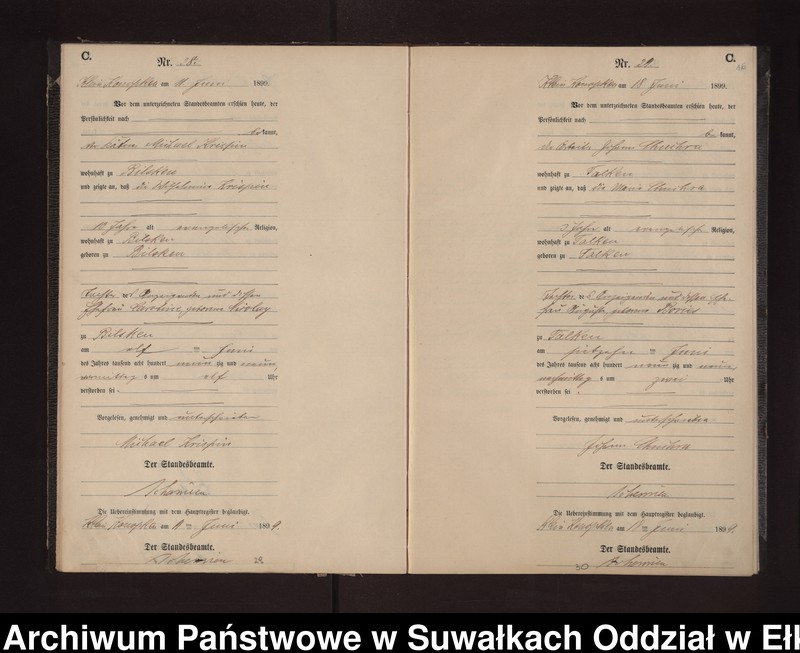 C.
Nr. 28.
Klein Konopken am 11 Juni 1899.
Vor dem unterzeichneten Standesbeamten erschien heute, der
Persönlichkeit nach
bekannt,
der Michael Krispin
wohnhaft zu Bilsken
und zeigte an, daß die Wilhelmine Krispin
10 Jahre alt evangelischer Religion,
wohnhaft zu Bilsken
geboren zu Bilsken
Tochter des Anzeigenden und dessen
Ehefrau Karoline, geborene
zu Bilsken
am elf ten Juni
des Jahres tausend acht hundert neunzig und neun,
vormittag s um elf Uhr
verstorben sei.
Vorgelesen, genehmigt und unterschrieben
Michael Krispin
Der Standesbeamte.
Die Uebereinstimmung mit dem Hauptregister beglaubigt.
Klein Konopken am 11 ten Juni 1899.
Der Standesbeamte.
28
C.
Nr. 29.
Klein Konopken am 18 Juni 1899.
Vor dem unterzeichneten Standesbeamten erschien heute, der
Persönlichkeit nach
bekannt,
der Arbeiter Johann
wohnhaft zu Talken
und zeigte an, daß die Maria
3 Jahre alt evangelischer Religion,
wohnhaft zu Talken
geboren zu Talken
Tochter des Anzeigenden und dessen Ehe-
frau Auguste, geborene
zu Talken
am siebzehn ten Juni
des Jahres tausend acht hundert neunzig und neun
nachmittag s um zwei Uhr
verstorben sei.
Vorgelesen, genehmigt und unterschrieben
Johann
Der Standesbeamte.
Die Uebereinstimmung mit dem Hauptregister beglaubigt.
Klein Konopken am 18 ten Juni 1899.
Der Standesbeamte.
Archiwum Państwowe w Suwałkach Oddział w Ełk